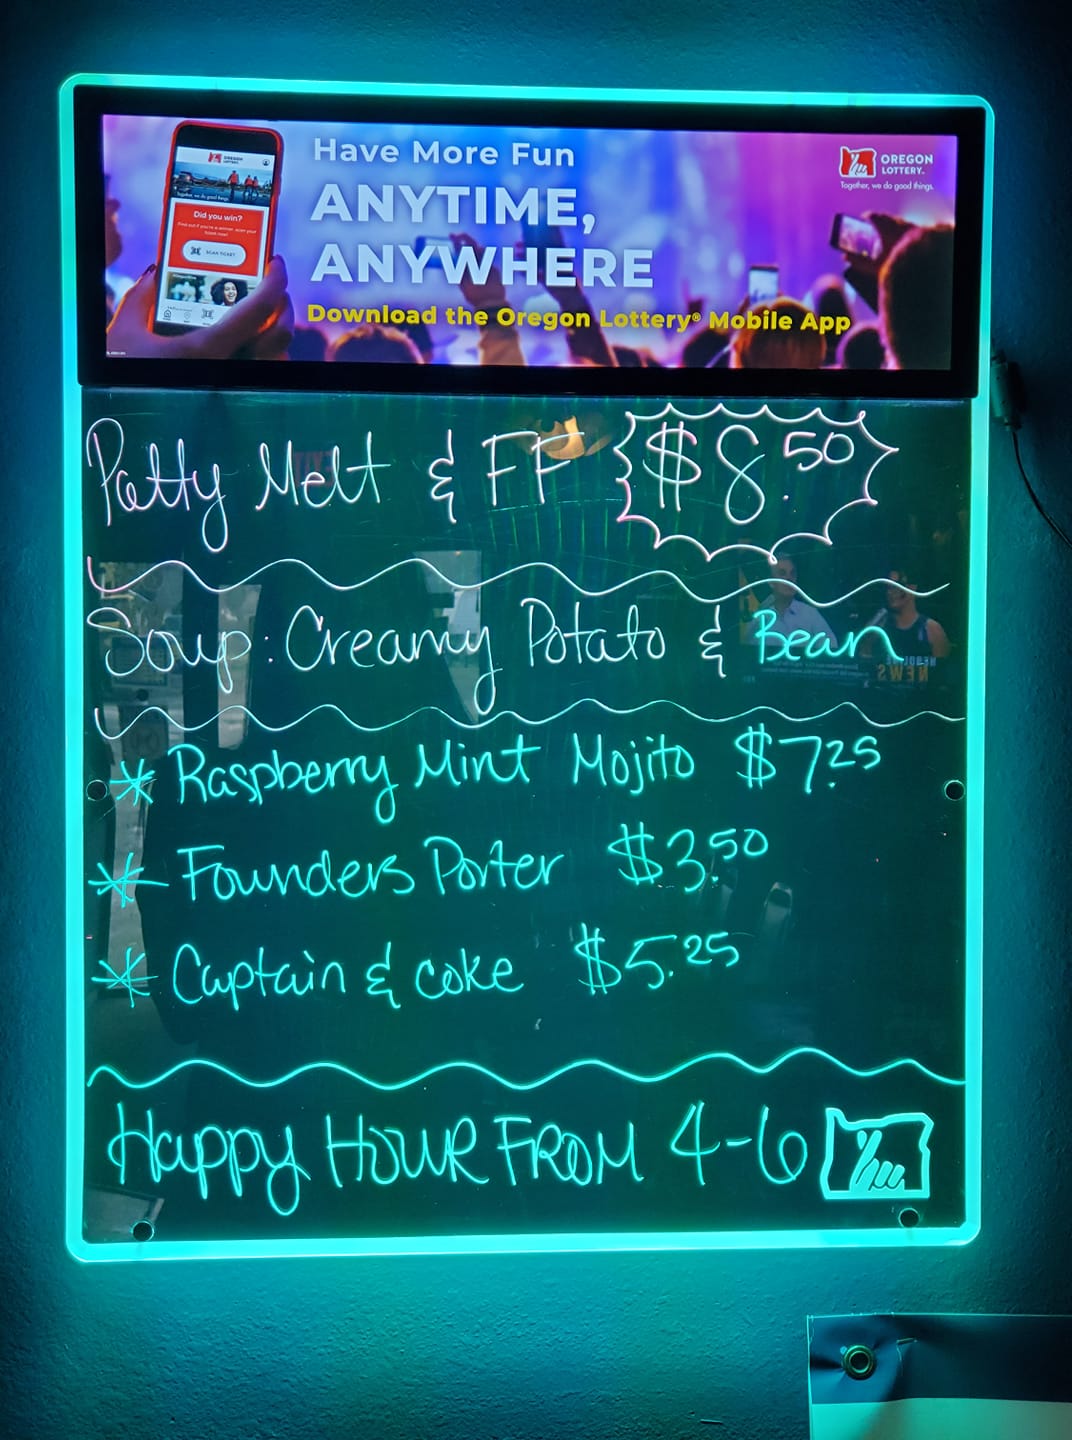 Have More Fun
ANYTIME,
ANYWHERE
Download the Oregon Lottery® Mobile App
OREGON
LOTTERY
Together, we do good things.
OREGON
LOTTERY
Together, we do good things.
Did you win?
SCAN TICKET
Patty Melt & FF $8.50
Soup: Creamy Potato & Bean
* Raspberry Mint Mojito $7.25
* Founders Porter $3.50
* Captain & coke $5.25
Happy HOUR FROM 4-6
EXIT
NEWS